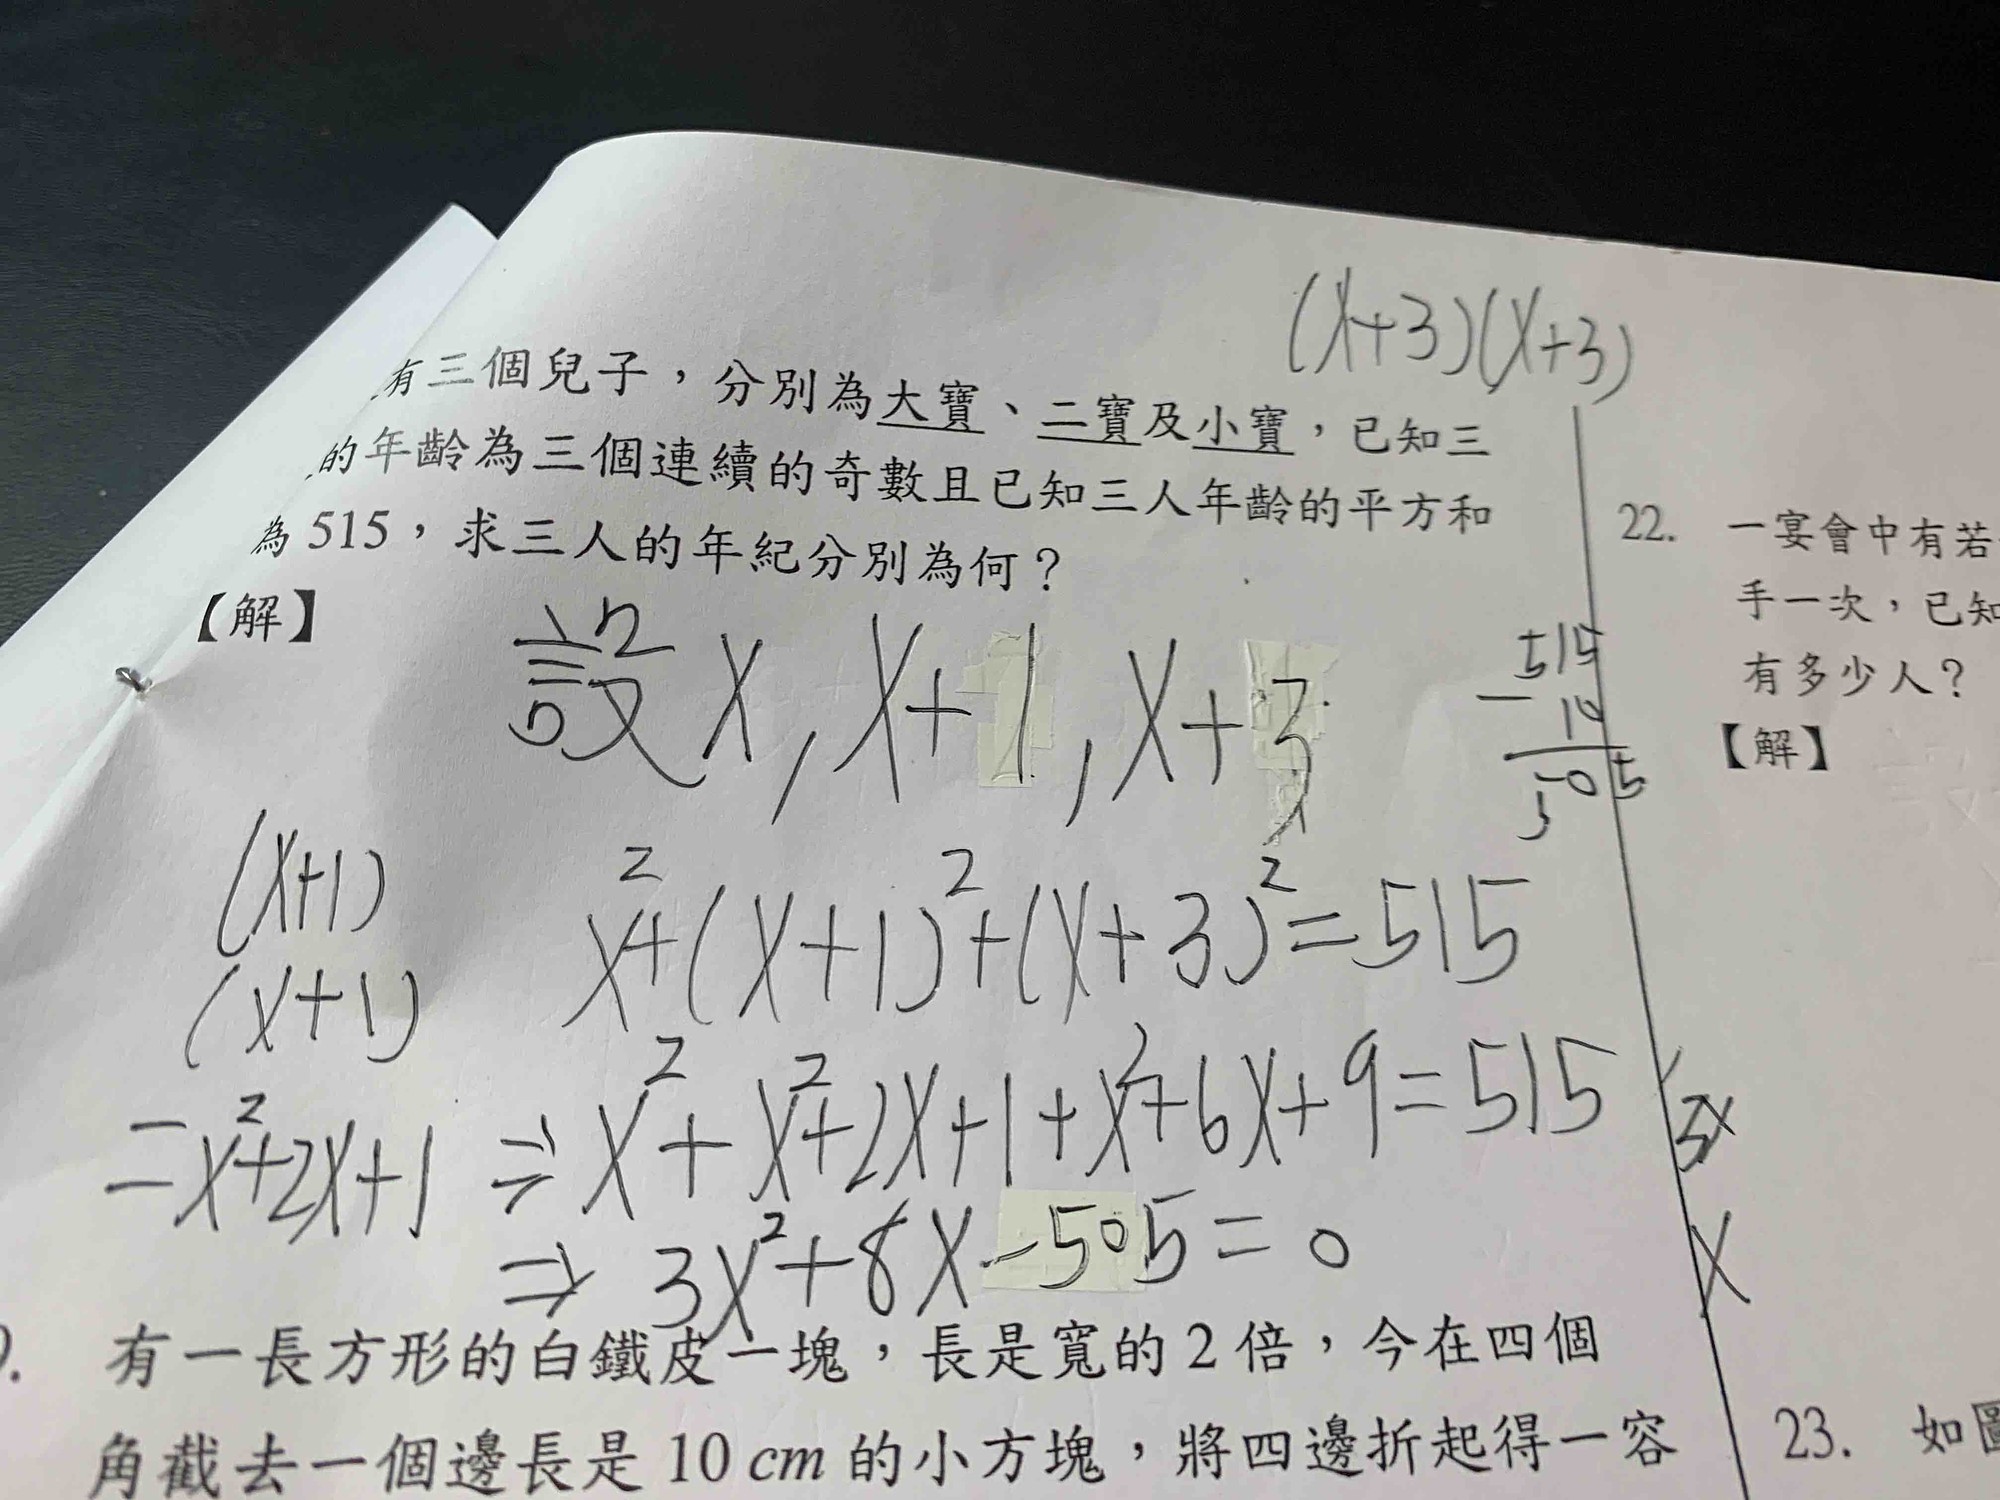 (x+3)(x+3)
有三個兒子，分別為大寶、二寶及小寶，已知三
的年齡為三個連續的奇數且已知三人年齡的平方和
為 515，求三人的年紀分別為何？
【解】
設 x, x+1, x+3
515
-10
505
(x+1)
(x+1)
= x²+2x+1
x²+(x+1)²+(x+3)²=515
⇒ x²+x²+2x+1+x²+6x+9=515
⇒ 3x²+8x-505=0
3x
x
有一長方形的白鐵皮一塊，長是寬的 2 倍，今在四個
角截去一個邊長是 10 cm 的小方塊，將四邊折起得一容
22. 一宴會中有若
手一次，已知
有多少人？
【解】
23. 如圖